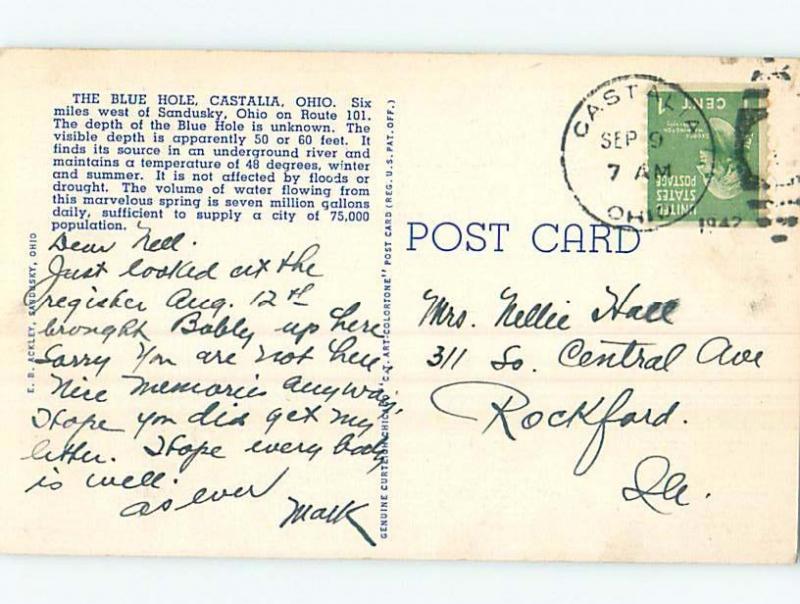 THE BLUE HOLE, CASTALIA, OHIO. Six
miles west of Sandusky, Ohio on Route 101.
The depth of the Blue Hole is unknown. The
visible depth is apparently 50 or 60 feet. It
finds its source in an underground river and
maintains a temperature of 48 degrees, winter
and summer. It is not affected by floods or
drought. The volume of water flowing from
this marvelous spring is seven million gallons
daily, sufficient to supply a city of 75,000
population.
Dear Nell.
Just looked at the
register Aug. 12th
brought Bobby up here
Sorry you are not here.
Nice memories anyway.
I hope you did get my
letter. I hope every body
is well.
as ever
Mark
E. B. ACKLEY, SANDUSKY, OHIO
GENUINE CURTEICH-CHICAGO "C.T. ART-COLORTONE" POST CARD (REG. U.S. PAT. OFF.)
POST CARD
CASTALIA
SEP 9
7 AM
OHIO
1942
1 CENT
UNITED
STATES
POSTAGE
Mrs. Nellie Hall
311 So. Central Ave
Rockford.
Ill.